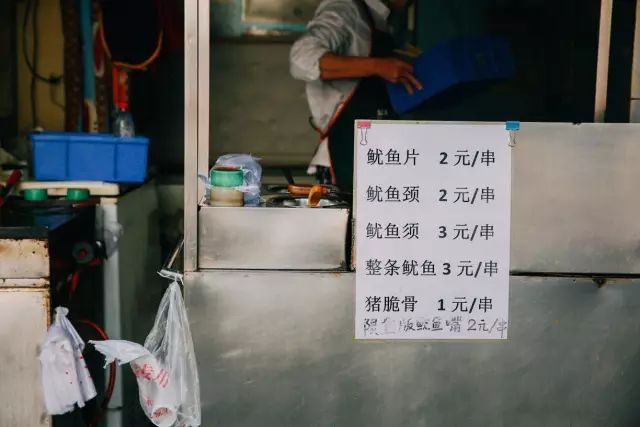 鱿鱼片 2 元/串
鱿鱼颈 2 元/串
鱿鱼须 3 元/串
整条鱿鱼 3 元/串
猪脆骨 1 元/串
限量版鱿鱼嘴 2元/串